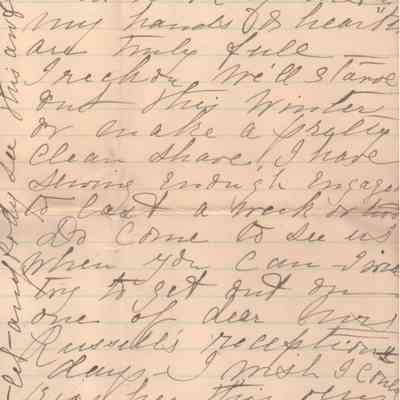 my hands & heart
are truly full
I reckon we'll starve
out this Winter
or make a pretty
clean shave, I have
sewing enough engaged
to last a week or two
Do come to see us
when you can I
try to get out on
one of dear Mrs
Russell's reception
days - I wish I could